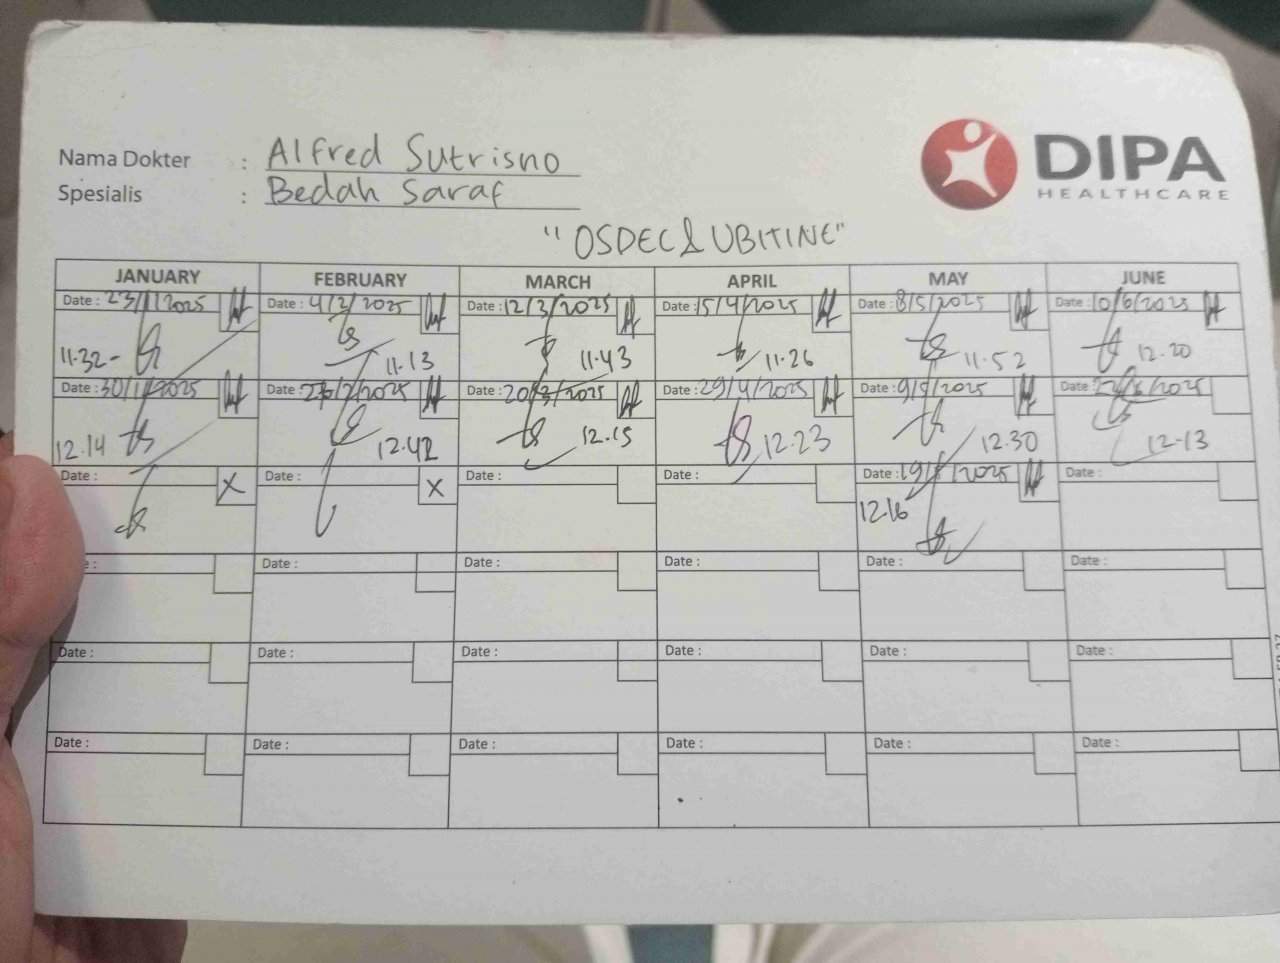 Nama Dokter : Alfred Sutrisno
Spesialis : Bedah Saraf
DIPA
HEALTHCARE
"OSDEC & UBITINE"
JANUARY FEBRUARY MARCH APRIL MAY JUNE
Date : 23/1/2025 Date : 4/2/2025 Date : 12/3/2025 Date : 15/4/2025 Date : 8/5/2025 Date : 10/6/2025
11.32- 11.13 11.43 11.26 11.52 12.20
Date : 30/1/2025 Date : Date : 20/3/2025 Date : 29/4/2025 Date : 9/5/2025 Date :
12.14 12.42 12.15 12.23 12.30 12.13
Date : X Date : X Date : Date : Date : 19/5/2025 Date :
12.16
Date : Date : Date : Date : Date :
Date : Date : Date : Date : Date : Date :
Date : Date : Date : Date : Date : Date :